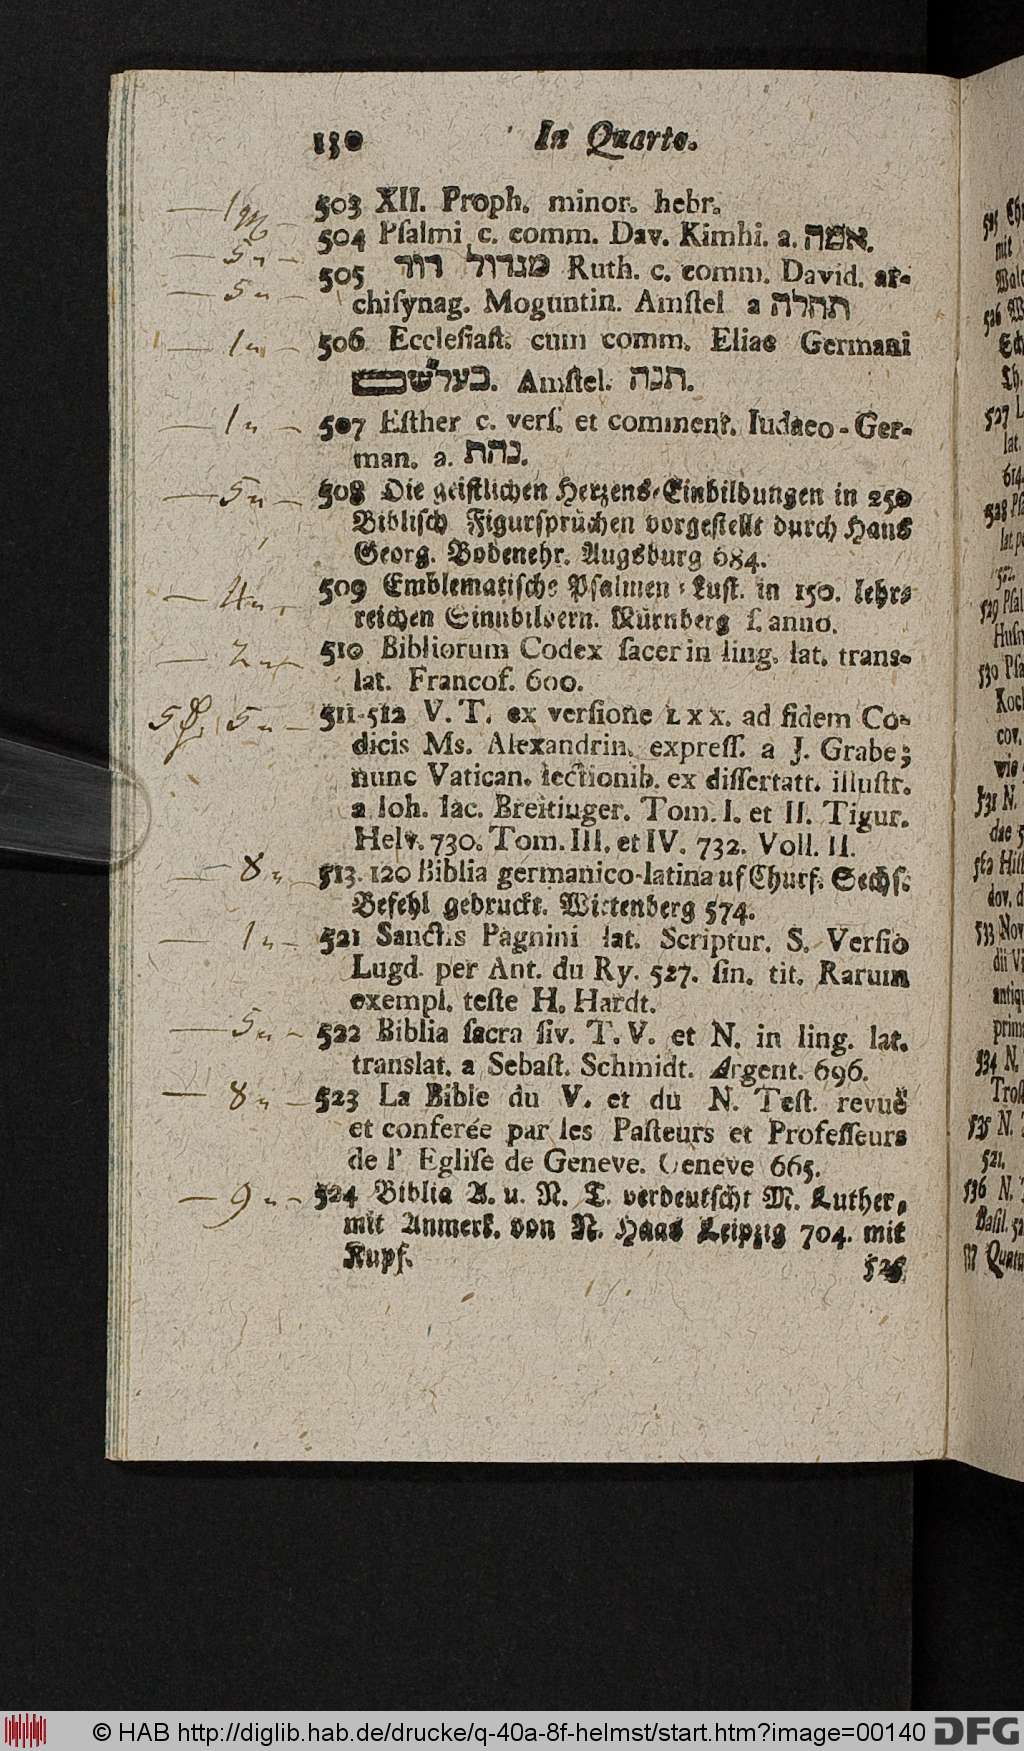 130 In Quarto.
— 1 — 503 XII. Proph. minor. hebr.
— 5 " — 504 Pſalmi c. comm. Dav. Kimhi. a. אמה.
— 5 " — 505 מגדול דוד Ruth. c. comm. David. ar-
chiſynag. Moguntin. Amſtel a תהלה
— 1 " — 506 Eccleſiaſt. cum comm. Eliae Germani
Amſtel. תנה.
— 1 " — 507 Eſther c. verſ. et comment. Iudaeo-Ger-
man. a. נהת.
— 5 " — 508 Die geiſtlichen Herzens-Einbildungen in 250
Bibliſch Figurſprüchen vorgeſtellt durch Hans
Georg. Bodenehr. Augsburg 684.
— 4 " — 509 Emblematiſche Pſalmen-Luſt. in 150. lehr-
reichen Sinnbildern. Nürnberg ſ. anno.
— 2 " — 510 Bibliorum Codex ſacer in ling. lat. trans-
lat. Francof. 600.
5 5 " — 511-512 V. T. ex verſione LXX. ad fidem Co-
dicis Ms. Alexandrin. expreſſ. a J. Grabe;
nunc Vatican. lectionib. ex diſſertatt. illuſtr.
a Ioh. Iac. Breitinger. Tom. I. et II. Tigur.
Helv. 730. Tom. III. et IV. 732. Voll. II.
— 8 " — 513. 120 Biblia germanico-latina uf Churf. Sechſ.
Befehl gedruckt. Wittenberg 574.
— 1 " — 521 Sanctis Pagnini lat. Scriptur. S. Verſio
Lugd. per Ant. du Ry. 527. ſin. tit. Rarum
exempl. teſte H. Hardt.
— 5 " — 522 Biblia ſacra ſiv. T. V. et N. in ling. lat.
translat. a Sebaſt. Schmidt. Argent. 696.
— 8 " — 523 La Bible du V. et du N. Teſt. revuë
et conferée par les Paſteurs et Profeſſeurs
de l' Egliſe de Geneve. Geneve 665.
— 9 " — 524 Biblia A. u. N. T. verdeutſcht M. Luther,
mit Anmerk. von N. Haas Leipzig 704. mit
Kupf.
525
© HAB http://diglib.hab.de/drucke/q-40a-8f-helmst/start.htm?image=00140 DFG